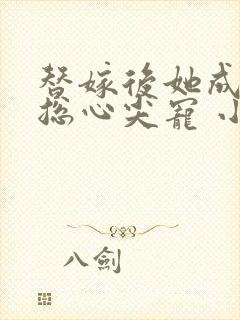 替嫁後她成
總心尖寵 小
八劍